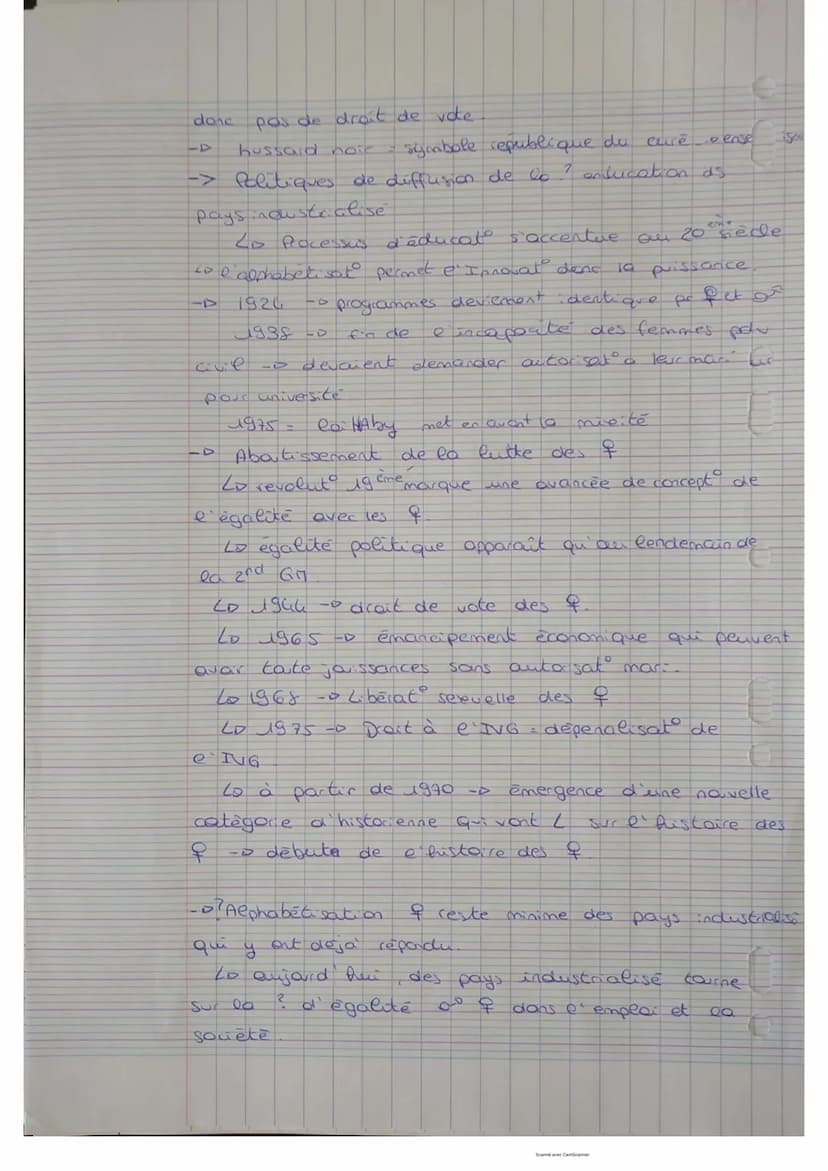 donc pas de droit de vote
-> hussard noir = symbole republique du curé
-> Politiques de diffusion de la ? ds
pays industrialisé
↳ Processus d'éducat° s'accentue au 20ème siècle
↳ l'alphabétisat° permet l'innovat° donc la puissance.
-> 1924 -> programmes deviennent identique pr ♀ et ♂
1938 -> fin de l'incapacité des femmes
civil -> devaient demander autorisat° a leur mari
pour université
1975 = Loi HAby met en avant la mixité
-> Aboutissement de la lutte des ♀
↳ revolut° 19ème marque une avancée de concept° de
l'égalité avec les ♀.
↳ égalité politique apparaît qu'au lendemain de
la 2nd GM
↳ 1944 -> droit de vote des ♀.
↳ 1965 -> émancipement économique qui peuvent
avoir toute jouissances sans autorisat° mari.
↳ 1968 -> Libérat° sexuelle des ♀
↳ 1975 -> Droit à l'IVG = dépénalisat° de
l'IVG
↳ à partir de 1970 -> émergence d'une nouvelle
catégorie d'historienne qui vont L sur l'histoire des
♀ -> débute de l'histoire des ♀
-> ? Alphabétisation ♀ reste minime des pays industrialisé
qui y ont déjà répondu.
↳ aujourd'hui, des pays industrialisé tourne
sur la ? d'égalité ♂ ♀ dans l'emploi et la
société.